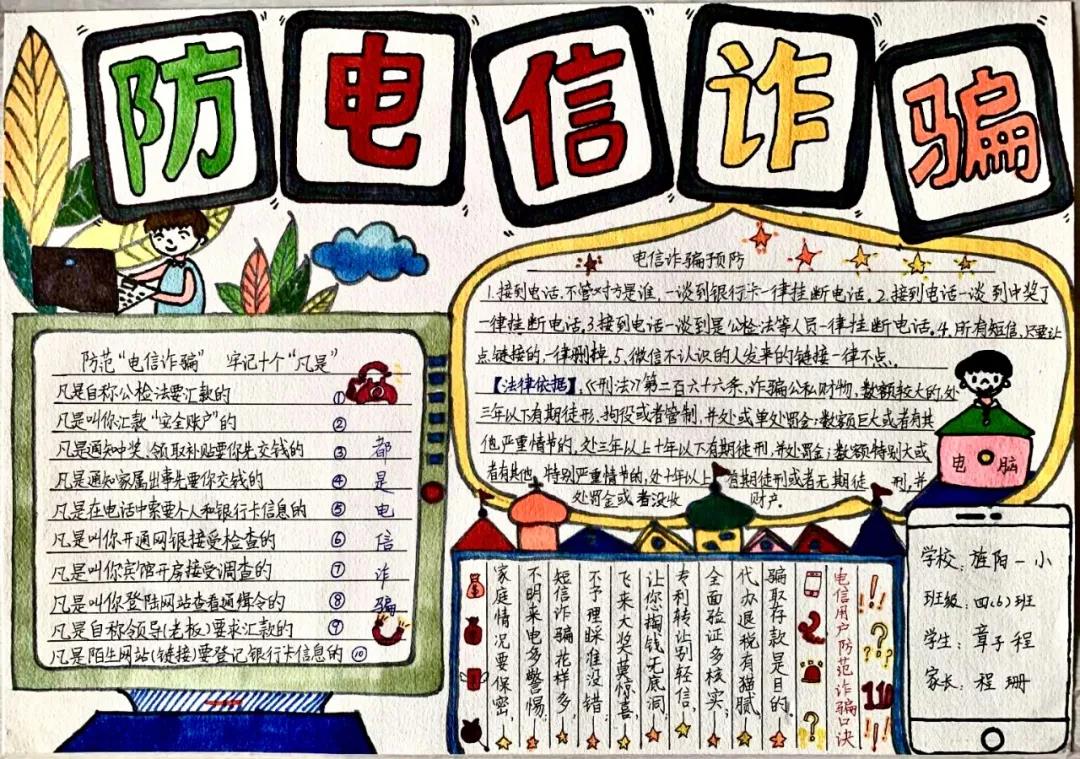 防电信诈骗
防范“电信诈骗” 牢记十个“凡是”
凡是自称公检法要汇款的 ①
凡是叫你汇款“安全账户”的 ②
凡是通知中奖、领取补贴要你先交钱的 ③
凡是通知家属出事先要你交钱的 ④
凡是在电话中索要个人和银行卡信息的 ⑤
凡是叫你开通网银接受检查的 ⑥
凡是叫你宾馆开房接受调查的 ⑦
凡是叫你登陆网站查看通缉令的 ⑧
凡是自称领导(老板)要求汇款的 ⑨
凡是陌生网站(链接)要登记银行卡信息的 ⑩
都是电信诈骗
电信诈骗预防
1.接到电话.不管对方是谁,一谈到银行卡一律挂断电话。2.接到电话一谈到中奖了
一律挂断电话。3.接到电话一谈到是公检法等人员一律挂断电话。4.所有短信,只要让
点链接的,一律删掉.5.微信不认识的人发来的链接一律不点.
【法律依据】,《刑法》第二百六十六条,诈骗公私财物,数额较大的,处
三年以下有期徒刑、拘役或者管制,并处或单处罚金;数额巨大或者有其
他严重情节的,处三年以上十年以下有期徒刑,并处罚金;数额特别大或
者有其他 特别严重情节的,处十年以上 有期徒刑或者无期徒 刑,并
处罚金或者没收 财产.
电脑
电信用户防范诈骗口诀
骗取存款是目的,
代办退税有猫腻,
全面验证多核实;
专利转让别轻信,
让您掏钱无底洞,
飞来大奖莫惊喜,
不予理睬准没错;
短信诈骗花样多,
不明来电多警惕,
家庭情况要保密,
110
学校:旌阳一小
班级:四(6)班
学生:章子程
家长:程珊